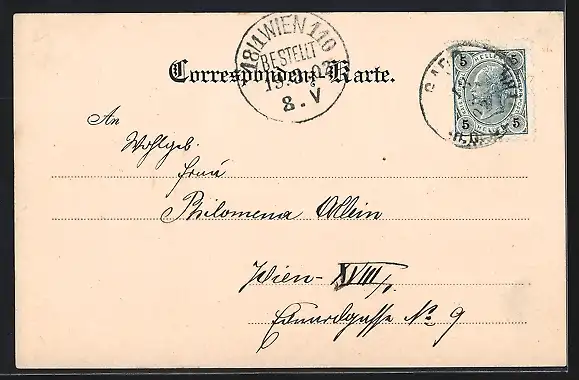 18/1 WIEN 110
BESTELLT
8.V
Correspondenz-Karte.
5 HELLER 5
5 HELLER 5
An
Wohlgeb.
Frau
Philomena Allein
Wien - XVIII/1.
Eduardgasse No 9